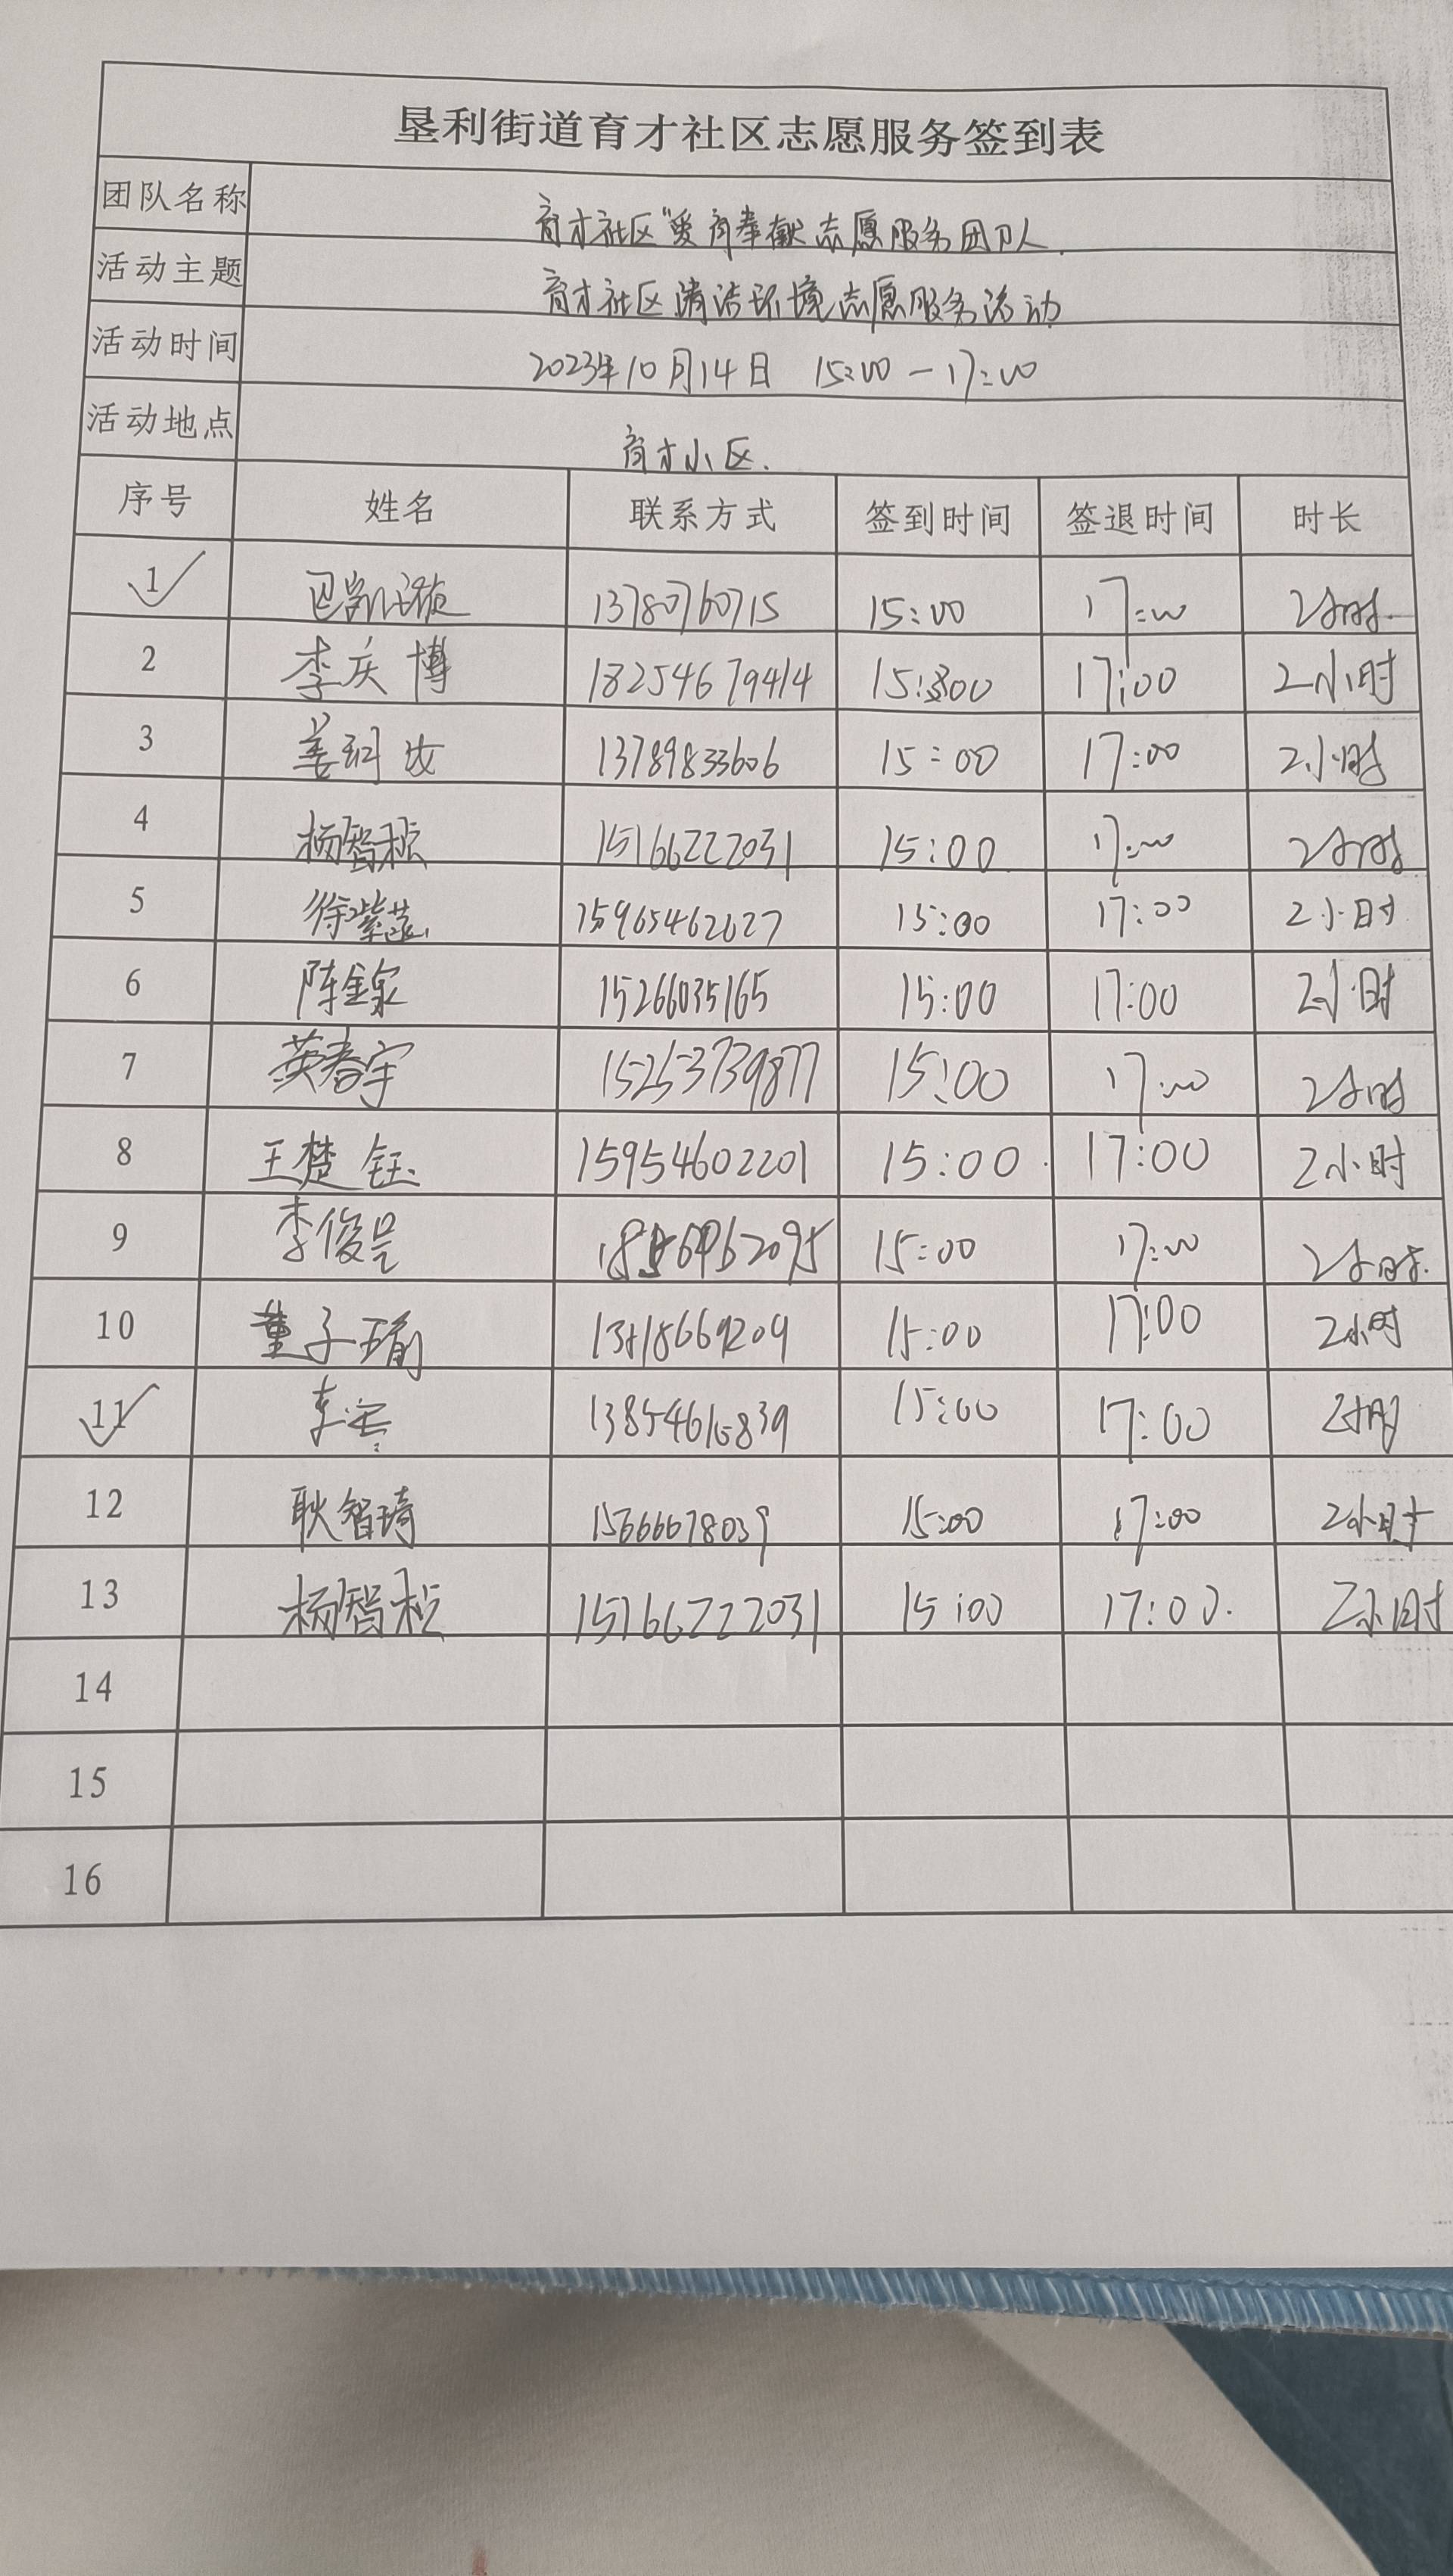 垦利街道育才社区志愿服务签到表
团队名称 育才社区“爱育奉献志愿服务团队
活动主题 育才社区清洁环境志愿服务活动
活动时间 2023年10月14日 15:00—17:00
活动地点 育才小区.
序号 姓名 联系方式 签到时间 签退时间 时长
1 13780760715 15:00 17:00 2小时
2 李庆博 18254679414 15:00 17:00 2小时
3 姜 13789833606 15:00 17:00 2小时
4 杨智松 15166222031 15:00 17:00 2小时
5 徐紫菡 15965462627 15:00 17:00 2小时
6 陈金泉 15266035165 15:00 17:00 2小时
7 英春宇 15253739877 15:00 17:00 2小时
8 王楚钰 15954602201 15:00 17:00 2小时
9 李俊 15:00 17:00 2小时
10 董子瑜 15:00 17:00 2小时
11 李 15:00 17:00 2小时
12 耿智琦 15666678039 15:00 17:00 2小时
13 杨智松 15166222031 15:00 17:00 2小时
14
15
16